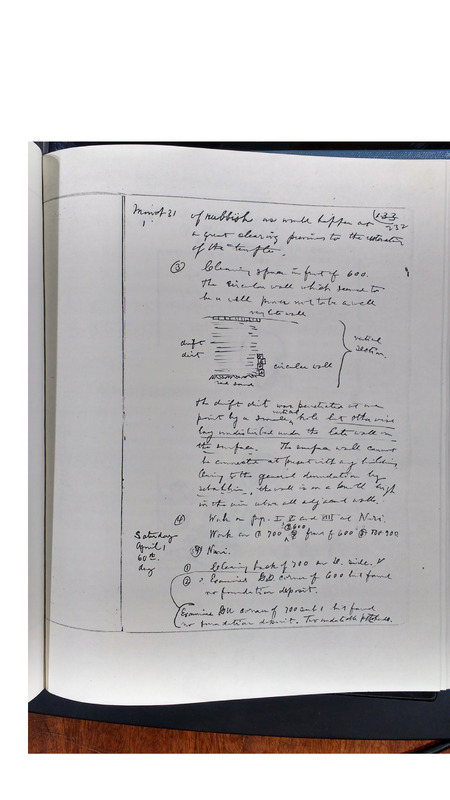 133
232
March 31
1
of rubbish as would happen at
a great clearing previous to the
of the temple.
③ Clearing space in front of 600.
The circular wall which seemed to
be a well proves not to be a well
wall
drift
dirt
circular wall
vertical
section.
red sand
The drift dirt was penetrated at one
point by a smaller vertical hole but otherwise
lay undisturbed under the late wall on
the surface. The surface wall cannot
be connected at present with any building
Owing to the general denudation by
sebakhin, the wall is on a knoll high
in the air above all adjacent walls.
④ Work on pyr. I, X and VIII at Nuri.
Saturday
April 1
60th
day
Work on ① 700 ② 600 ③ front of 600
④ Nuri.
① Clearing back of 700 on side.
② Examined corner of 600 but found
no foundation deposit.
Examined corner of 700 sub 1 but found
no foundation deposit.